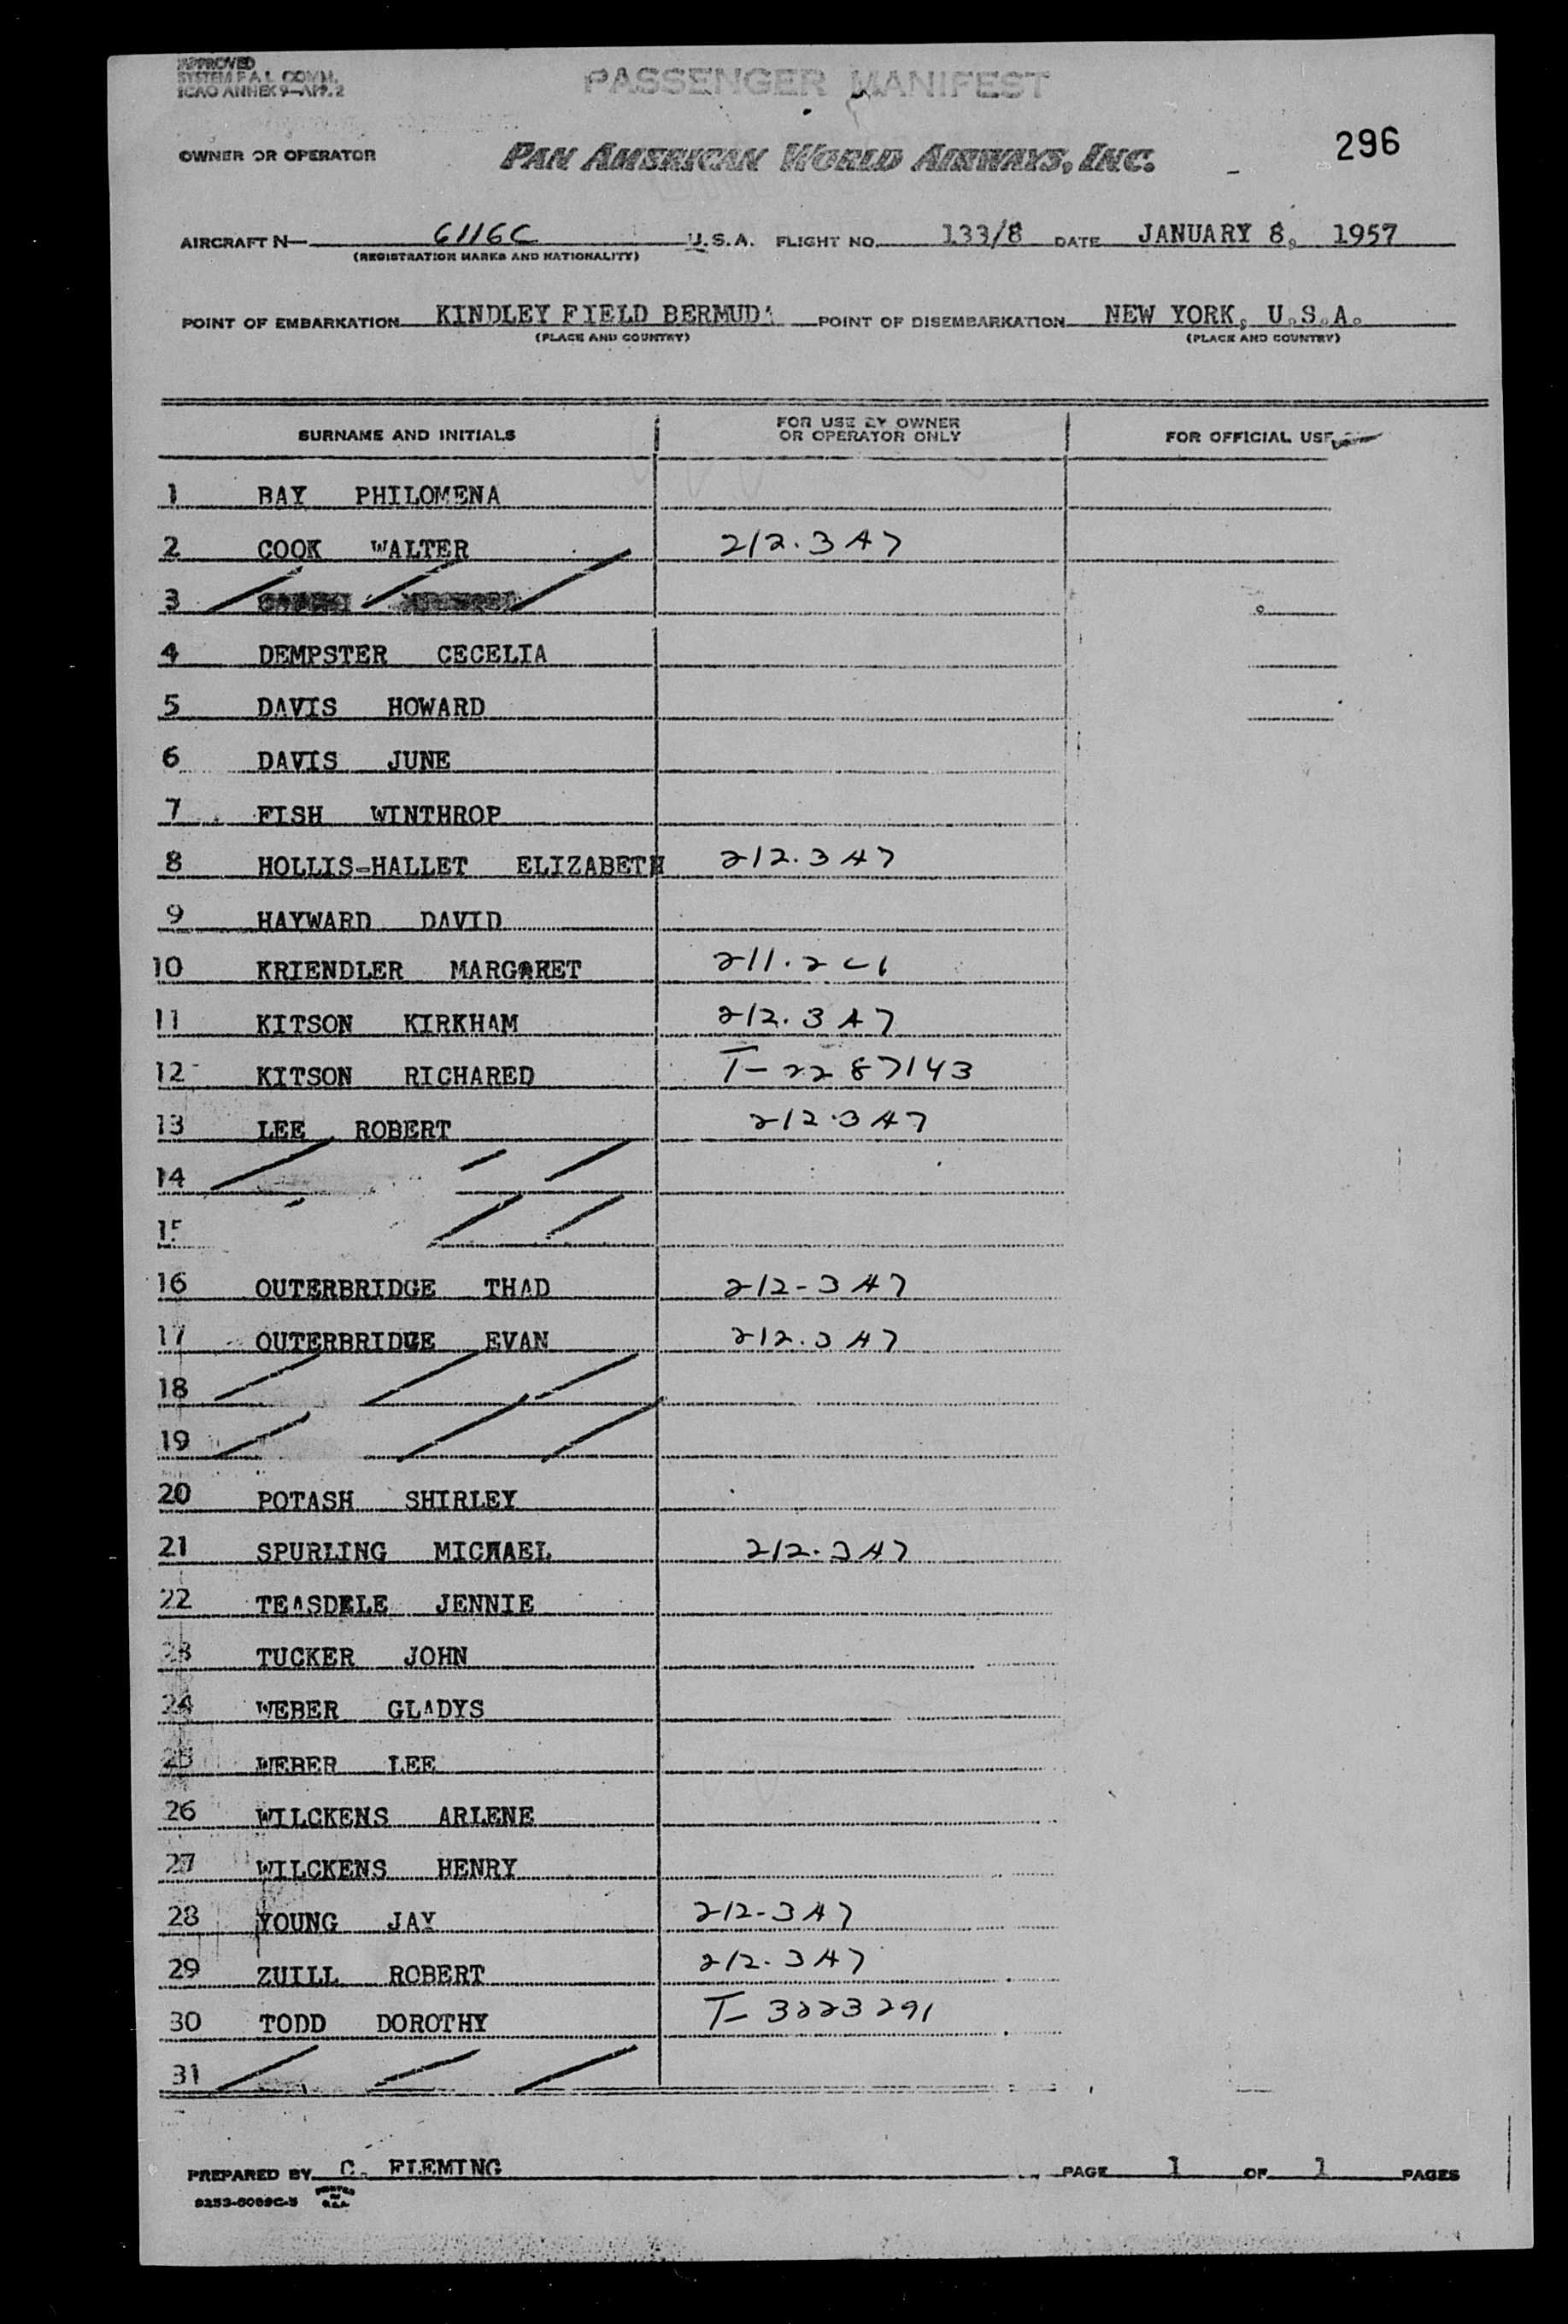 APPROVED
SYSTEM F.A.L. COMM.
ICAO ANNEX 9-APP. 2
PASSENGER MANIFEST
OWNER OR OPERATOR PAN AMERICAN WORLD AIRWAYS, INC. 296
AIRCRAFT N- 6116C U.S.A. FLIGHT NO. 133/8 DATE JANUARY 8, 1957
(REGISTRATION MARKS AND NATIONALITY)
POINT OF EMBARKATION KINDLEY FIELD BERMUDA POINT OF DISEMBARKATION NEW YORK, U.S.A.
(PLACE AND COUNTRY) (PLACE AND COUNTRY)
SURNAME AND INITIALS FOR USE BY OWNER OR OPERATOR ONLY FOR OFFICIAL USE
1 BAY PHILOMENA
2 COOK WALTER 212.3 A7
3
4 DEMPSTER CECELIA
5 DAVIS HOWARD
6 DAVIS JUNE
7 FISH WINTHROP
8 HOLLIS-HALLET ELIZABETH 212.3 A7
9 HAYWARD DAVID
10 KRIENDLER MARGARET 211.2 C1
11 KITSON KIRKHAM 212.3 A7
12 KITSON RICHARED T-2287143
13 LEE ROBERT 212.3 A7
14
15
16 OUTERBRIDGE THAD 212-3 A7
17 OUTERBRIDGE EVAN 212.3 A7
18
19
20 POTASH SHIRLEY
21 SPURLING MICHAEL 212.3 A7
22 TEASDELE JENNIE
23 TUCKER JOHN
24 WEBER GLADYS
25 WEBER LEE
26 WILCKENS ARLENE
27 WILCKENS HENRY
28 YOUNG JAY 212-3 A7
29 ZUILL ROBERT 212.3 A7
30 TODD DOROTHY T-3223291
31
PREPARED BY C. FLEMING PAGE 1 OF 1 PAGES
PRINTED IN U.S.A.